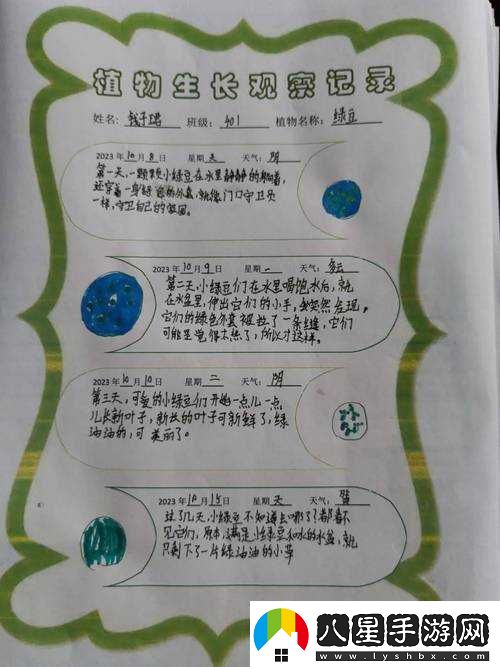 植物生长观察记录
姓名: 钱子珺 班级: 401 植物名称: 绿豆
2023年10月8日 星期天 天气: 阴
第一天,一颗颗小绿豆在水里静静的躺着,
还穿着一身绿色的外套,就像门口守卫员
一样,守卫自己的家园。
2023年10月9日 星期一 天气: 多云
第二天,小绿豆们在水里喝饱水后,就
在水盆里,伸出它们的小手,我突然发现,
它们的绿色外套被拉了一条缝,它们
可能是觉得不热了,所以才这样。
2023年10月10日 星期二 天气: 阴
第三天,可爱的小绿豆们开始一点儿一点
儿长新叶子,新长的叶子可新鲜了,绿
油油的,可美丽了。
2023年10月15日 星期天 天气:
过了几天,小绿豆不知道去哪了了都看不
见它们,原本满是小绿豆和水的水盆,就
只剩下了一片绿油油的小草
八星手游网
www.lyshbx.com